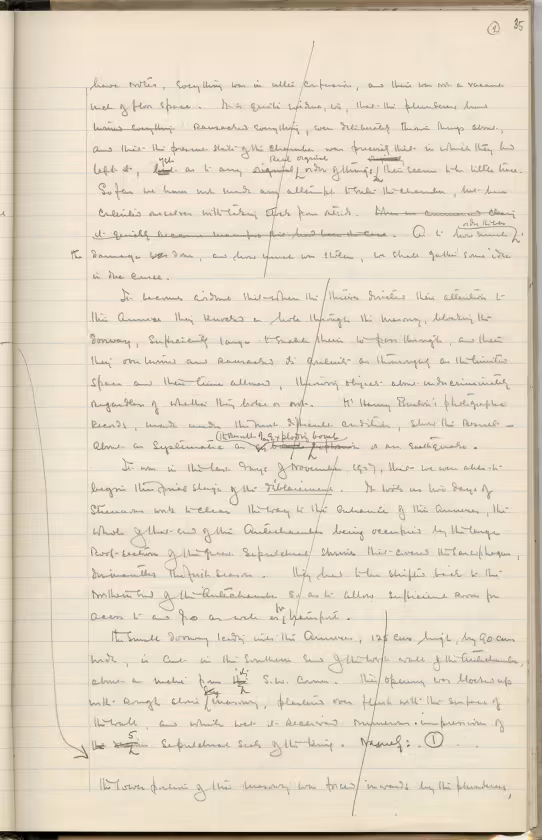 (9) 35
have notes, Everything was in utter confusion, and there was not a vacant
inch of floor space. It is quite evident, that the plunderers had
Ransacked everything, even deliberately thrown things about,
and that the present state of the chamber was precisely that in which they had
left it, as to any real original order of things, there seems to be little trace.
So far we have not made any attempt to the chamber, but have
ourselves with taking stock from outside.
it quickly became the case. As to how much
the damage was done, and how much was stolen, we shall gather some idea
in due course.
It became evident that when the thieves directed their attention to
this Annexe they knocked a hole through the masonry, blocking the
doorway, sufficiently large to enable them to pass through, and then
they and ransacked its contents as thoroughly as the limited
space and their time allowed, throwing objects about indiscriminately
regardless of whether they broke or not. Mr Harry Burton's photographic
records, made under the most difficult conditions, show the result -
about as systematic as the result of an exploding bomb or an Earthquake.
It was in the last days of November 1927, that we were able to
begin this final stage of the déblaiement. It took us two days of
strenuous work to clear the way to the entrance of this Annexe, the
whole of that end of the Antechamber being occupied by the large
roof-section of the great Sepulchral Shrines that covered the Sarcophagus,
dismantled the fourth Season. They had to be shifted back to the
Northern end of the Antechamber so as to allow sufficient room for
access to and fro as well as for transport.
The small doorway leading into the Annexe, 128 cms. high, by 90 cms
wide, is cut in the Southern end of the West wall of the Antechamber,
about a metre from its S.W. Corner. This opening was blocked up
with rough stone masonry, plastered over flush with the surface of
the wall, and whilst wet it received numerous impressions of
the 5 Sepulchral Seals of the King. Namely: (1)
The lower portion of this masonry was forced inwards by the plunderers,